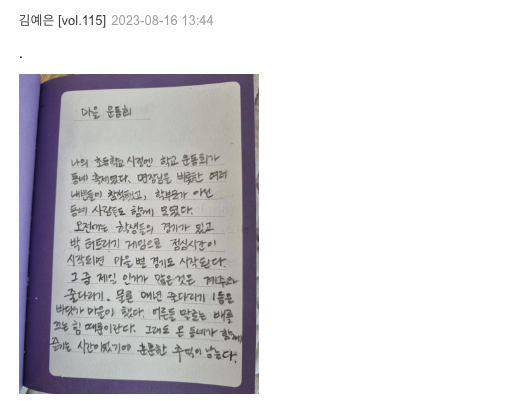 김예은 [vol.115] 2023-08-16 13:44
.
마을 운동회
나의 초등학교 시절엔 학교 운동회가
동네 축제였다. 면장님을 비롯한 여러
내빈들이 참석하고, 학부모가 아닌
동네 사람들도 함께 모였다.
오전에는 학생들의 경기가 있고
박 터트리기 게임으로 점심시간이
시작되면 마을 별 경기도 시작된다.
그 중 제일 인기가 많은 것은 계주와
줄다리기. 물론 매년 줄다리기 1등은
바닷가 마을이 했다. 어른들 말로는 배를
끄는 힘 때문이란다. 그래도 온 동네가 함께
즐기는 시간이었기에 훈훈한 추억이 남는다.